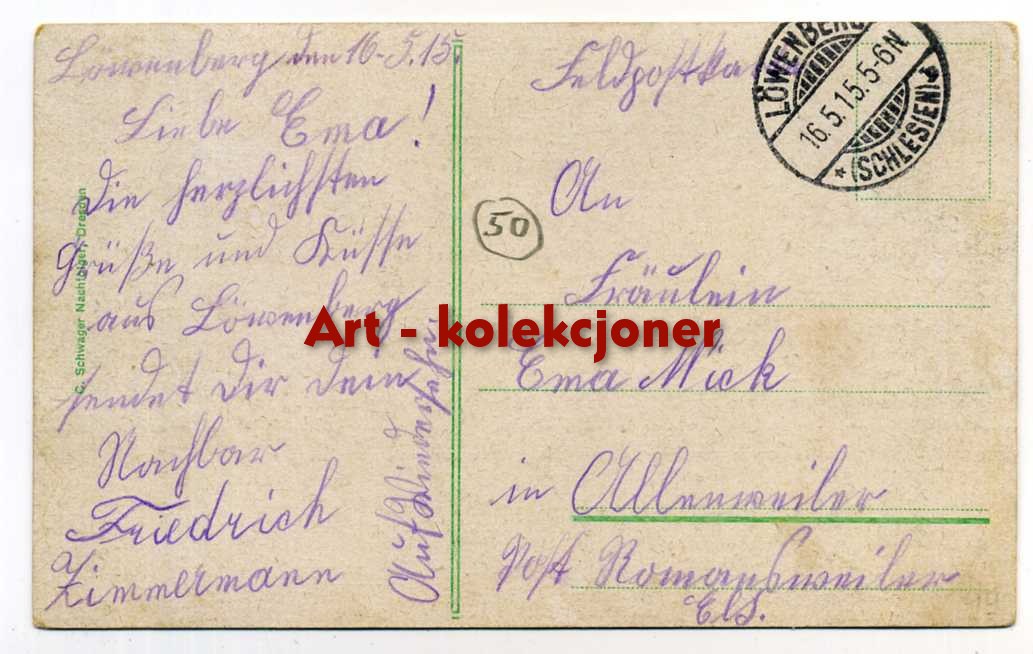 Löwenberg den 16.5.15.
Liebe Ema!
Die herzlichsten
Grüße und Küsse
aus Löwenberg
sendet Dir dein
Nachbar
Friedrich
Zimmermann
Auf Wiedersehn
C. Schwager Nachfolger, Dresden
50
Feldpostka
LÖWENBERG
16.5.15.5-6N
* (SCHLESIEN) *
An
Fräulein
Ema Mick
in Allenweiler
Post Romansweiler
Els.
Art - kolekcjoner